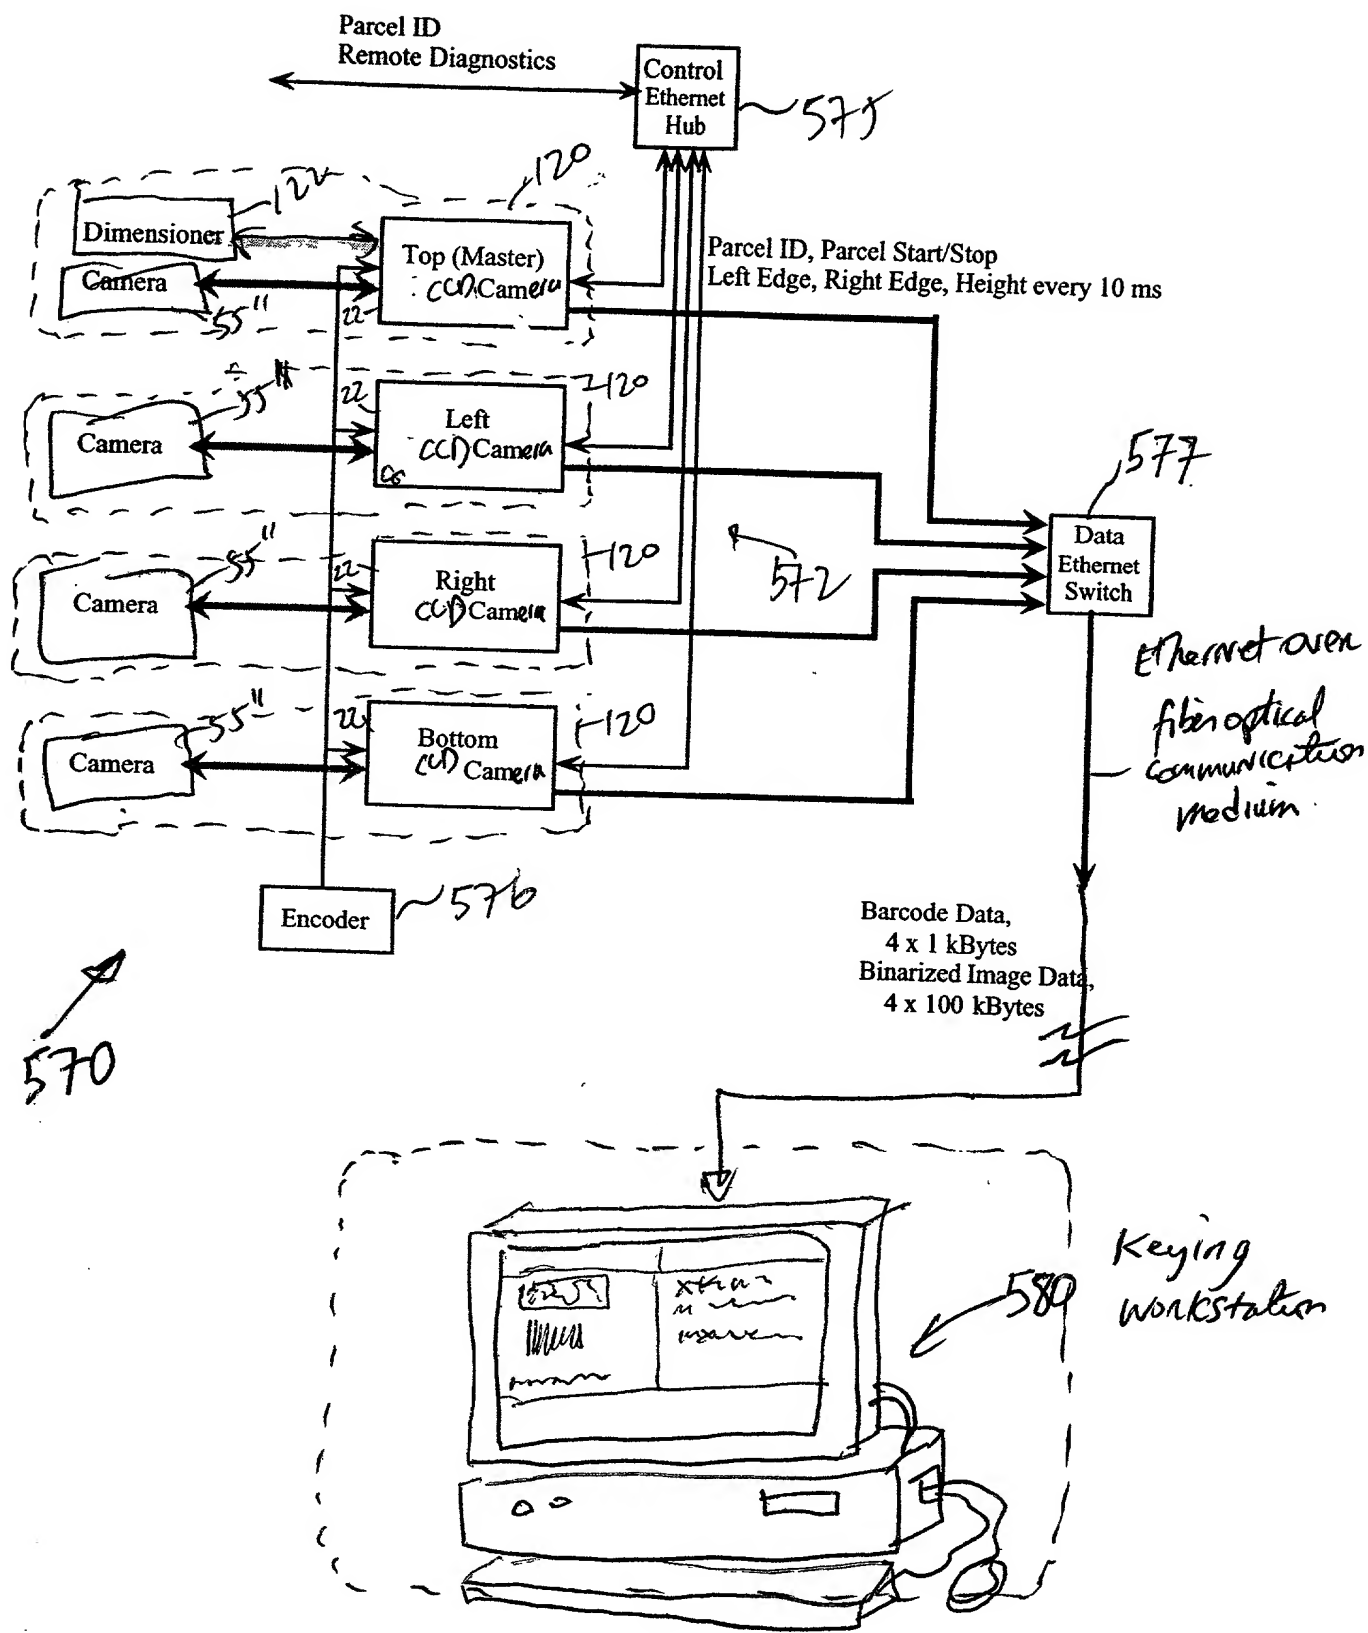 Parcel ID
Remote Diagnostics
Control
Ethernet
Hub
575
120
122
Dimensioner
Camera
55"
Top (Master)
CCD Camera
22
Parcel ID, Parcel Start/Stop
Left Edge, Right Edge, Height every 10 ms
120
55"
Camera
22
Left
CCD Camera
577
Data
Ethernet
Switch
572
120
55"
Camera
22
Right
CCD Camera
Ethernet over
fiber optical
communication
medium
120
55"
Camera
22
Bottom
CCD Camera
Encoder
576
Barcode Data,
4 x 1 kBytes
Binarized Image Data,
4 x 100 kBytes
570
580
Keying
workstation